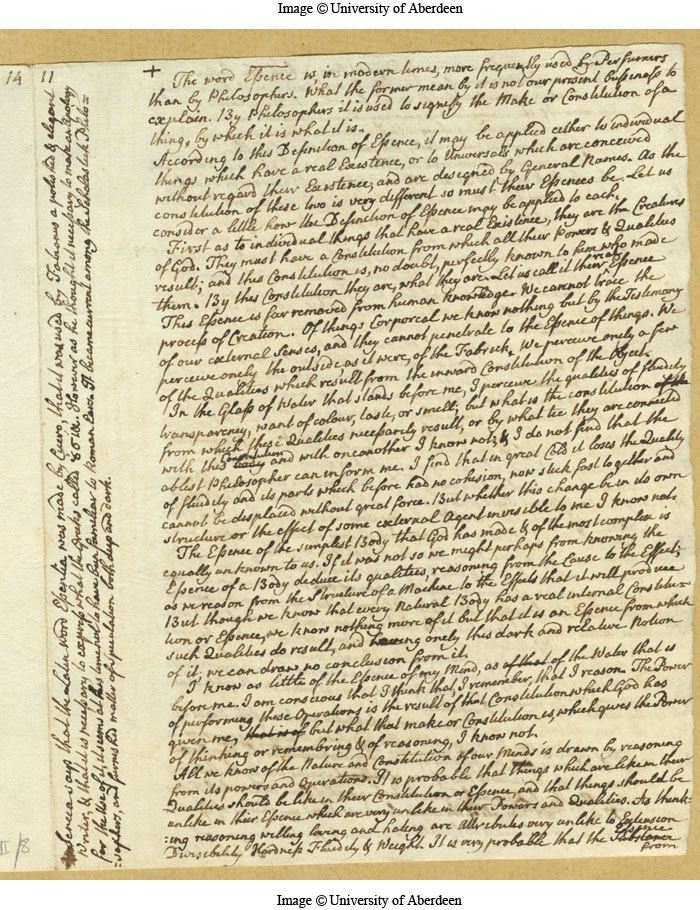 Image © University of Aberdeen
14
11
+ The word Essence is, in modern times, more frequently used by Perfumers
than by Philosophers. What the former mean by it is not our present bussiness to
explain. By Philosophers it is used to signify the Make or Constitution of a
thing, by which it is what it is.
According to this Definition of Essence, it may be applied either to individual
things which have a real Existence, or to Universals which are conceived
without regard their Existence, and are designed by General Names. As the
constitution of these two is very different so must their Essences be. Let us
consider a little how the Definition of Essence may be applied to each.
First as to individual things that have a real Existence, they are the Creatures
of God. They must have a Constitution from which all their Powers & Qualities
result; and this Constitution is, no doubt, perfectly known to him who made
them. By this Constitution they are, what they are. Let us call it their real Essence
This Essence is far removed from human knowledge. We cannot trace the
process of Creation. Of things Corporeal we know nothing but by the Testimony
of our external Senses, and they cannot penetrate to the Essence of things. We
perceive onely the outside as it were, of the Fabrick. We perceive onely a few
of the Qualities which result from the inward Constitution of the Object.
In the Glass of Water that stands before me, I perceive the qualities of fluidity
transparency, want of colour, taste, or smell; but what is the constitution
from which these Qualities necessarily result, or by what tie they are connected
with this Constitution and with one another I know not; & I do not find that the
ablest Philosopher can inform me. I find that in great Cold it loses the Quality
of fluidity and its parts which before had no cohesion, now stick fast together and
cannot be displaced without great force. But whether this change be in its own
structure or the effect of some external Agent invisible to me I know not.
The Essence of the simplest Body that God has made & of the most complex is
equally unknown to us. If it was not so we might perhaps from knowing the
Essence of a Body deduce its qualities, reasoning from the Cause to the Effect;
as we reason from the Structure of a Machine to the Effects that it will produce
But though we know that every Natural Body has a real internal Constitu=
tion or Essence, we know nothing more of it but that it is an Essence from which
such Qualities do result, and having onely this dark and relative Notion
of it, we can draw no conclusion from it.
I know as little of the Essence of my Mind, as of that of the Water that is
before me. I am conscious that I think that I remember, that I reason. The Power
of performing these Operations is the result of that Constitution which God has
given me, that is of but what that make or Constitution is, which gives the Power
of thinking or remembring & of reasoning, I know not.
All we know of the Nature and Constitution of our Minds is drawn by reasoning
from its powers and Operations. It is probable that things which are like in their
Qualities should be like in their Constitution or Essence, and that things should be
unlike in their Essence which are very unlike in their Powers and Qualities. As think=
=ing reasoning willing loving and hating are Attributes very unlike to Extension
Divisibility Hardness Fluidity & Weight. It is very probable that the Substance Essence
from
Seneca says that the Latin word Essentia was made by Cicero, that it was used by Fabianus a polished & elegant
Writer, & that it is necessary to express what the Greeks called However as he thought it necessary to make an apology
for the Use of it, it seems at this time not to have been familiar to Roman Ears. It became current among the Scholastick Philo=
=sophers, and furnished matter of speculation both deep and dark.
II/8
Image © University of Aberdeen